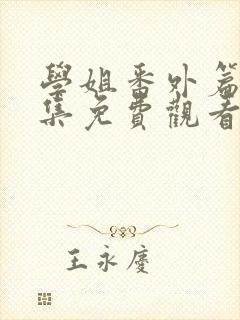 學姐番外篇
集免費觀看
王永慶